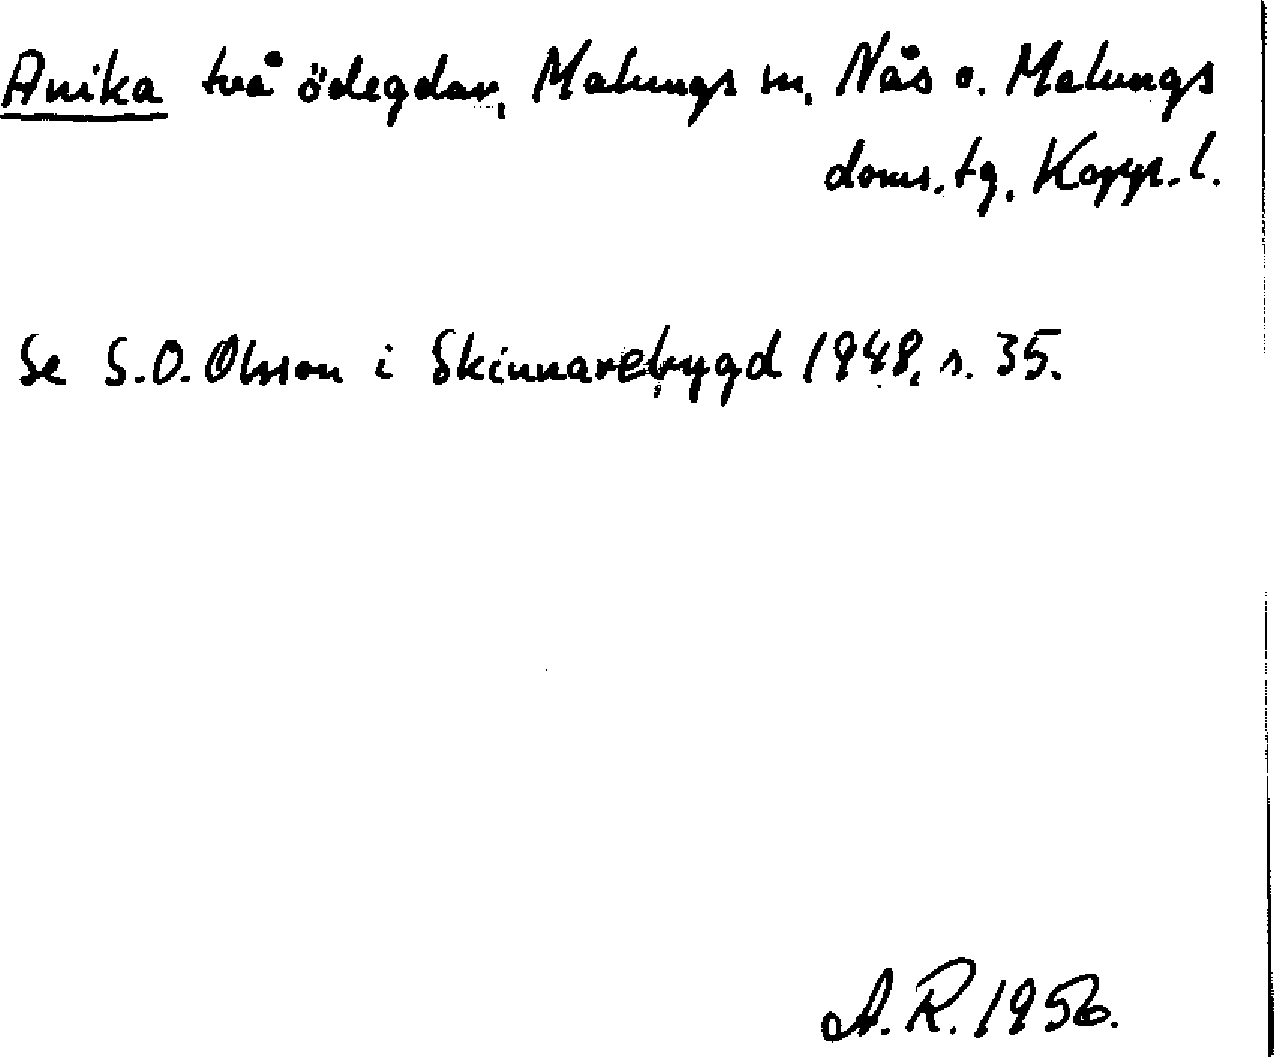 Anika två ödegdar, Malungs sn, Nås o. Malungs
doms. tg, Kopp. l.
Se S.O. Olsson i Skinnarebygd 1948, s. 35.
A.R. 1956.